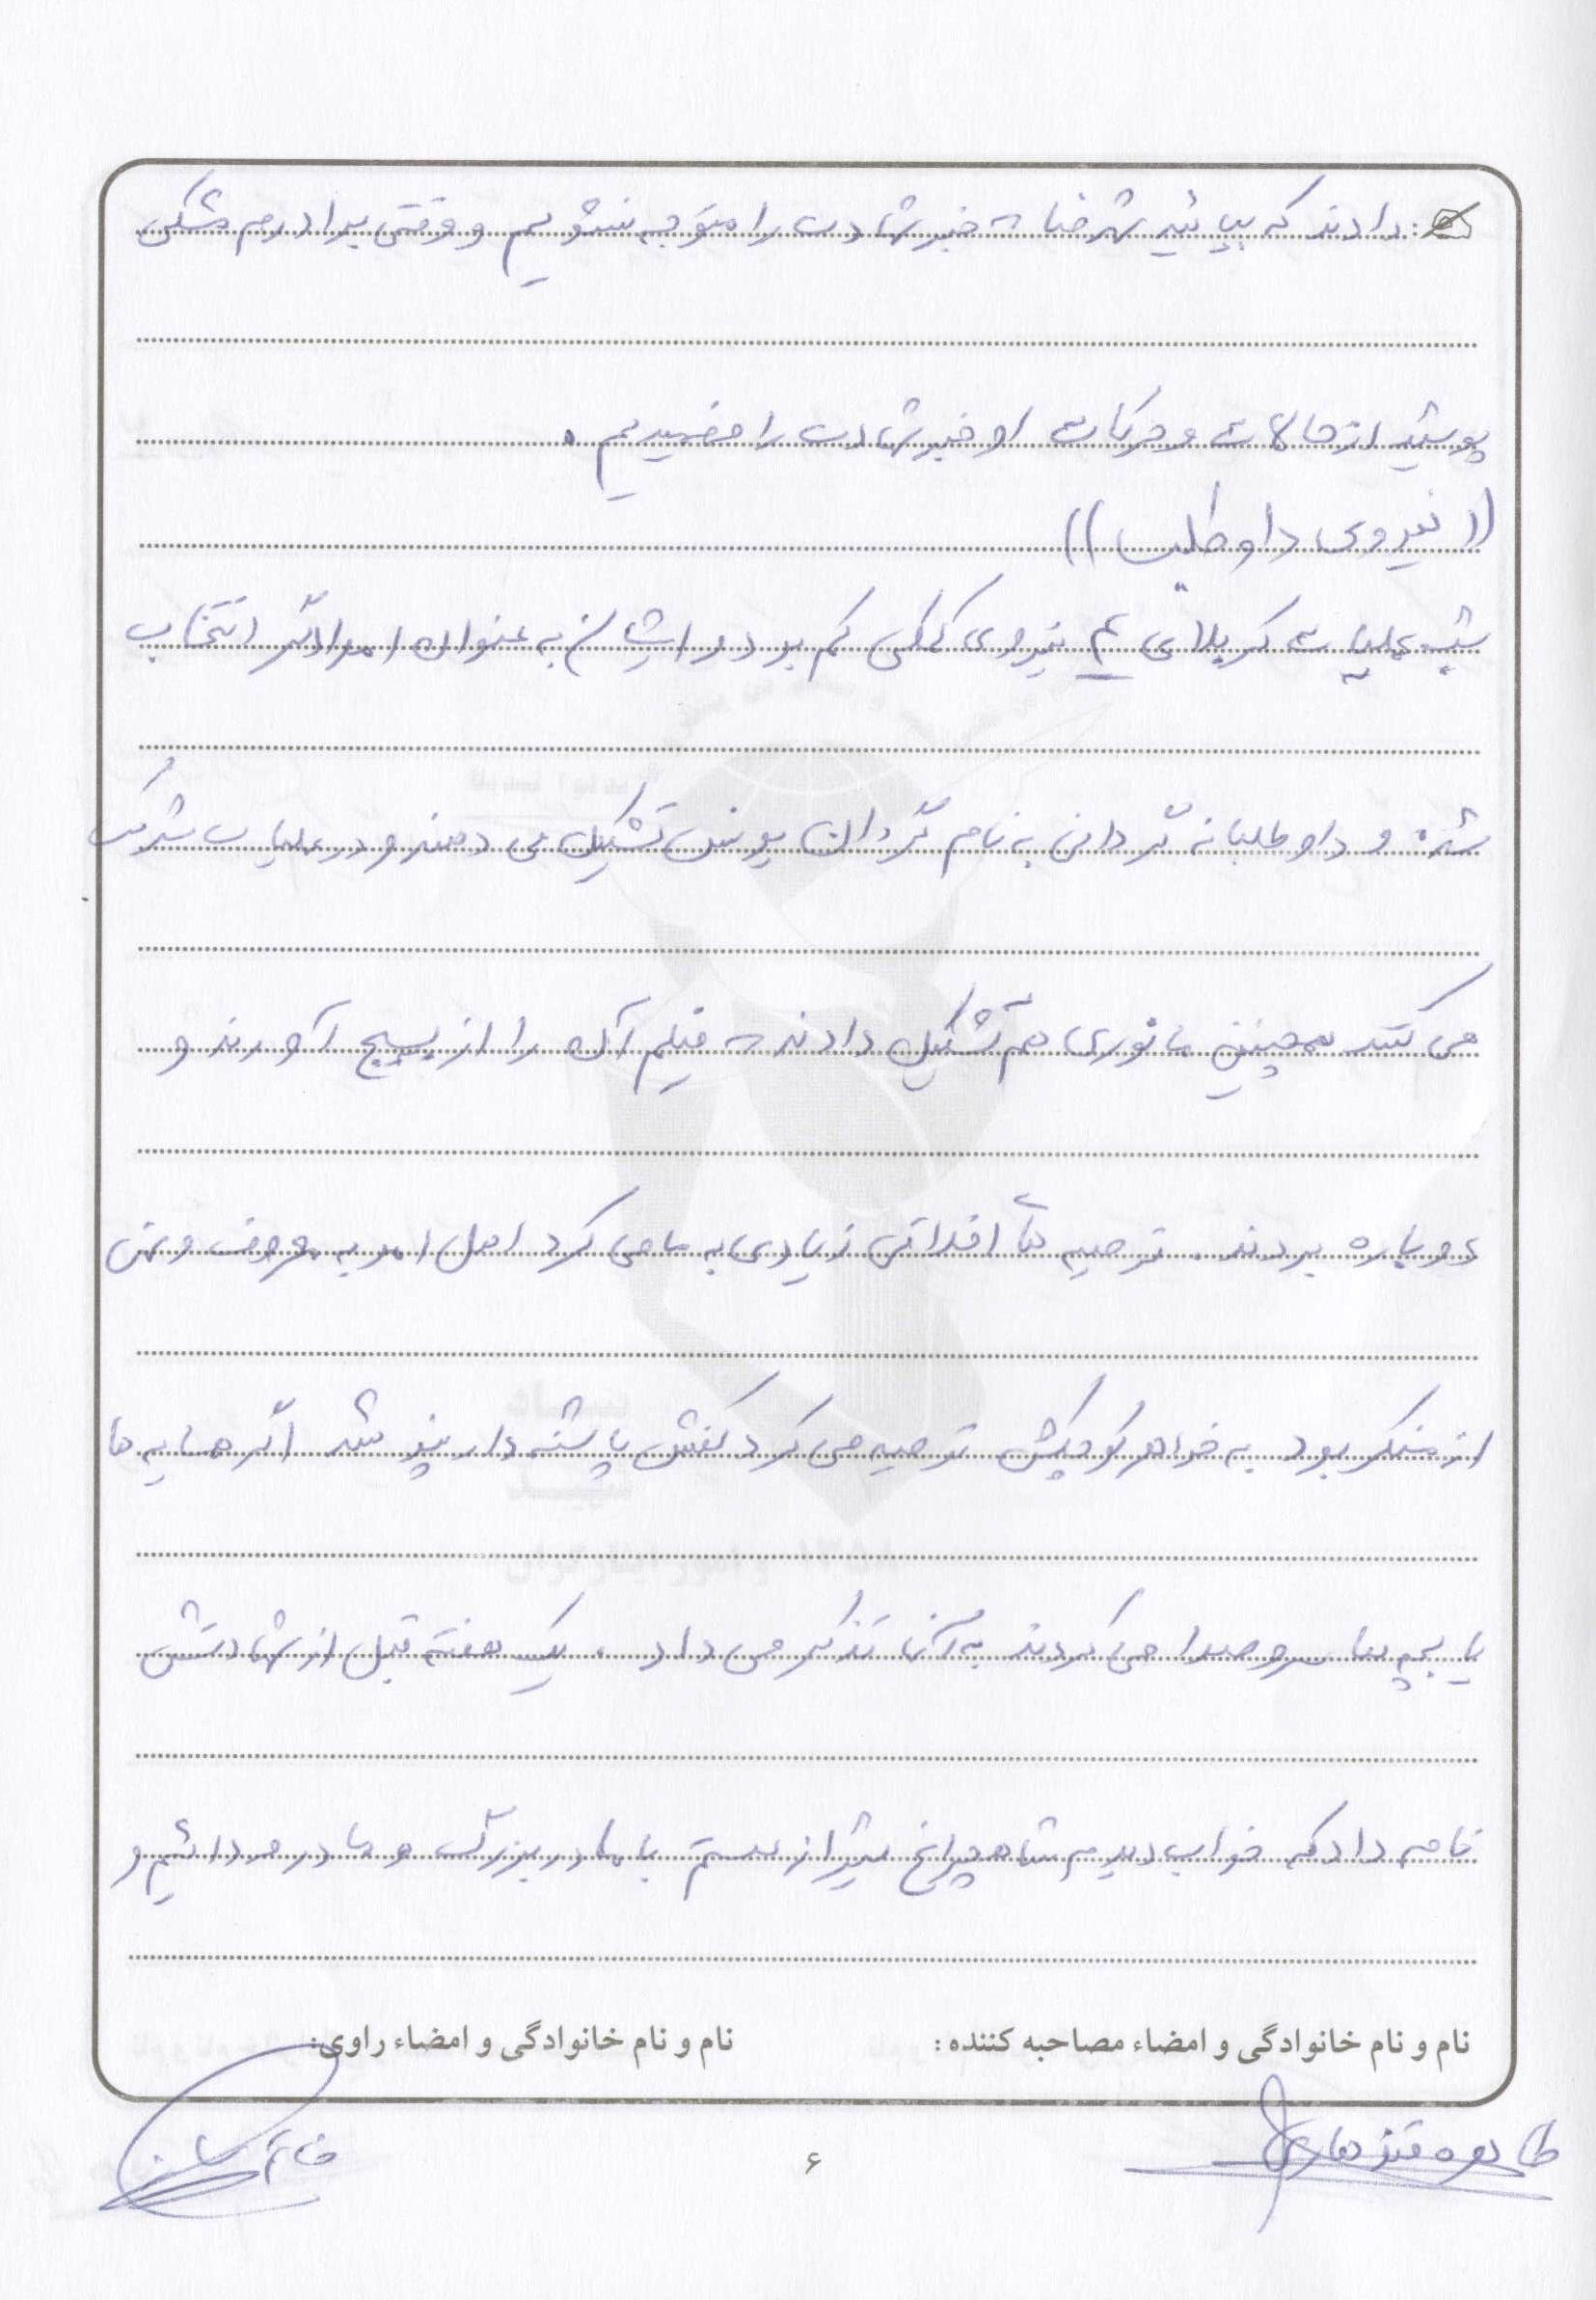 دادند که بیائید شهرضا خبر شهادت را متوجه نشویم و وقتی برادرم مشکی
پوشید از حالات و حرکات او خبر شهادت را فهمیدیم .
(( نیروی داوطلب ))
شب عملیات کربلای ۴ نیروی کمکی کم بود و ایشان به عنوان امدادگر انتخاب
شده و داوطلبانه گردانی به نام گردان یونس تشکیل می دهند و در عملیات شرکت
می کنند همچنین مانوری هم تشکیل دادند فیلم آن را از بسیج آوردند و
دوباره بردند . توصیه های اخلاقی زیادی به ما می کرد اهل امر به معروف و نهی
از منکر بود به خواهر کوچکش توصیه می کرد کفش پاشنه دار نپوشد اگر همسایه ها
یا بچه ها سر و صدا می کردند به آنها تذکر می داد . یک هفته قبل از شهادتش
نامه داد که خواب دیدم شاهچراغ شیراز هستم با مادربزرگ و مادرم دائیم و
نام و نام خانوادگی و امضاء مصاحبه کننده :
نام و نام خانوادگی و امضاء راوی:
طاهره قندهاری
خانم
۶